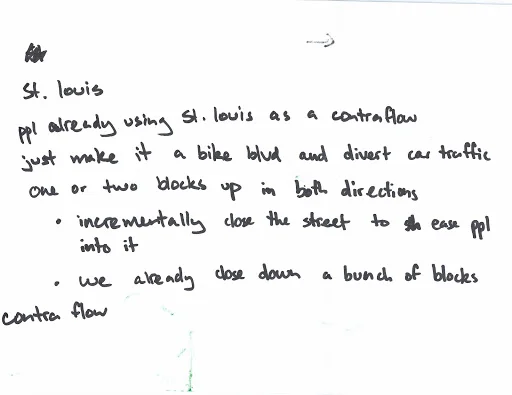 St. louis
ppl already using St. louis as a contraflow
just make it a bike blvd and divert car traffic
one or two blocks up in both directions
• incrementally close the street to ease ppl
into it
• we already close down a bunch of blocks
contra flow